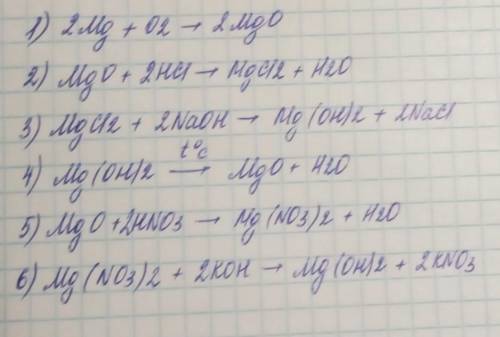 1) 2Mg + O2 → 2MgO
2) MgO + 2HCl → MgCl2 + H2O
3) MgCl2 + 2NaOH → Mg(OH)2 + 2NaCl
4) Mg(OH)2 t°C → MgO + H2O
5) MgO + 2HNO3 → Mg(NO3)2 + H2O
6) Mg(NO3)2 + 2KOH → Mg(OH)2 + 2KNO3